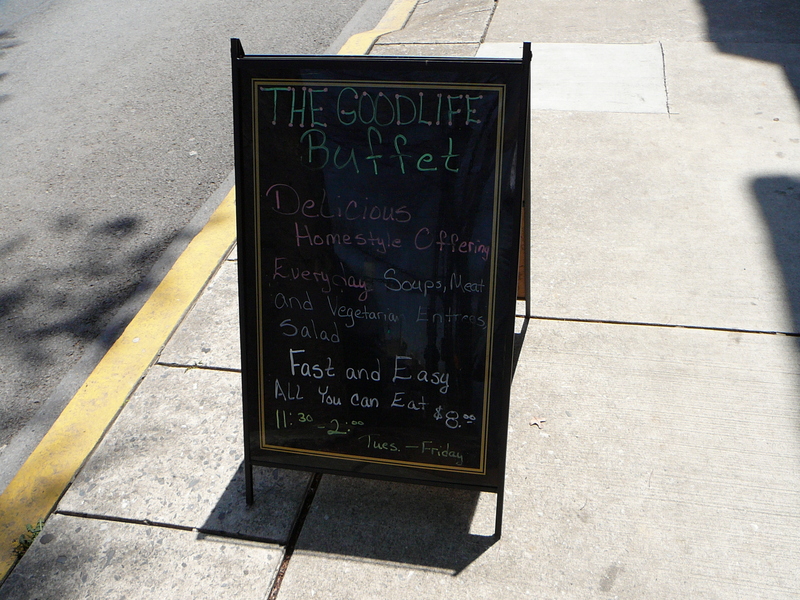 THE GOODLIFE
Buffet
Delicious
Homestyle Offering
Everyday Soups, Meat
and Vegetarian Entrees,
Salad
Fast and Easy
ALL You can Eat $8.00
11:30 - 2:00
Tues. - Friday